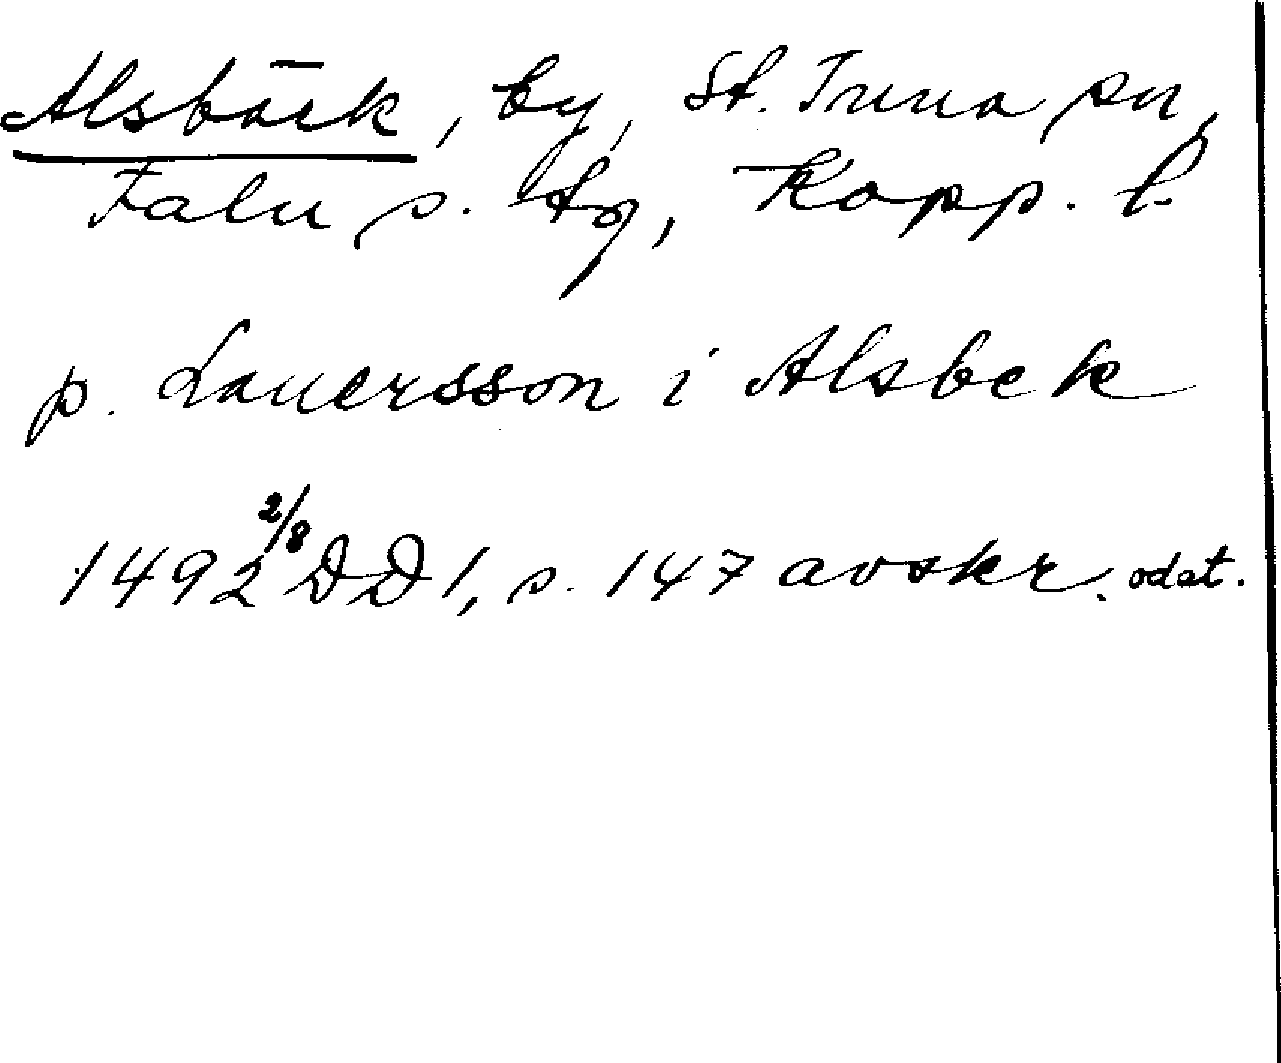 Alsbäck, by, St. Tuna sn,
Falu s. tg, Kopp. l.
p. Lauersson i Alsbek
1492 2/8 DD 1, s. 147 avskr. odat.